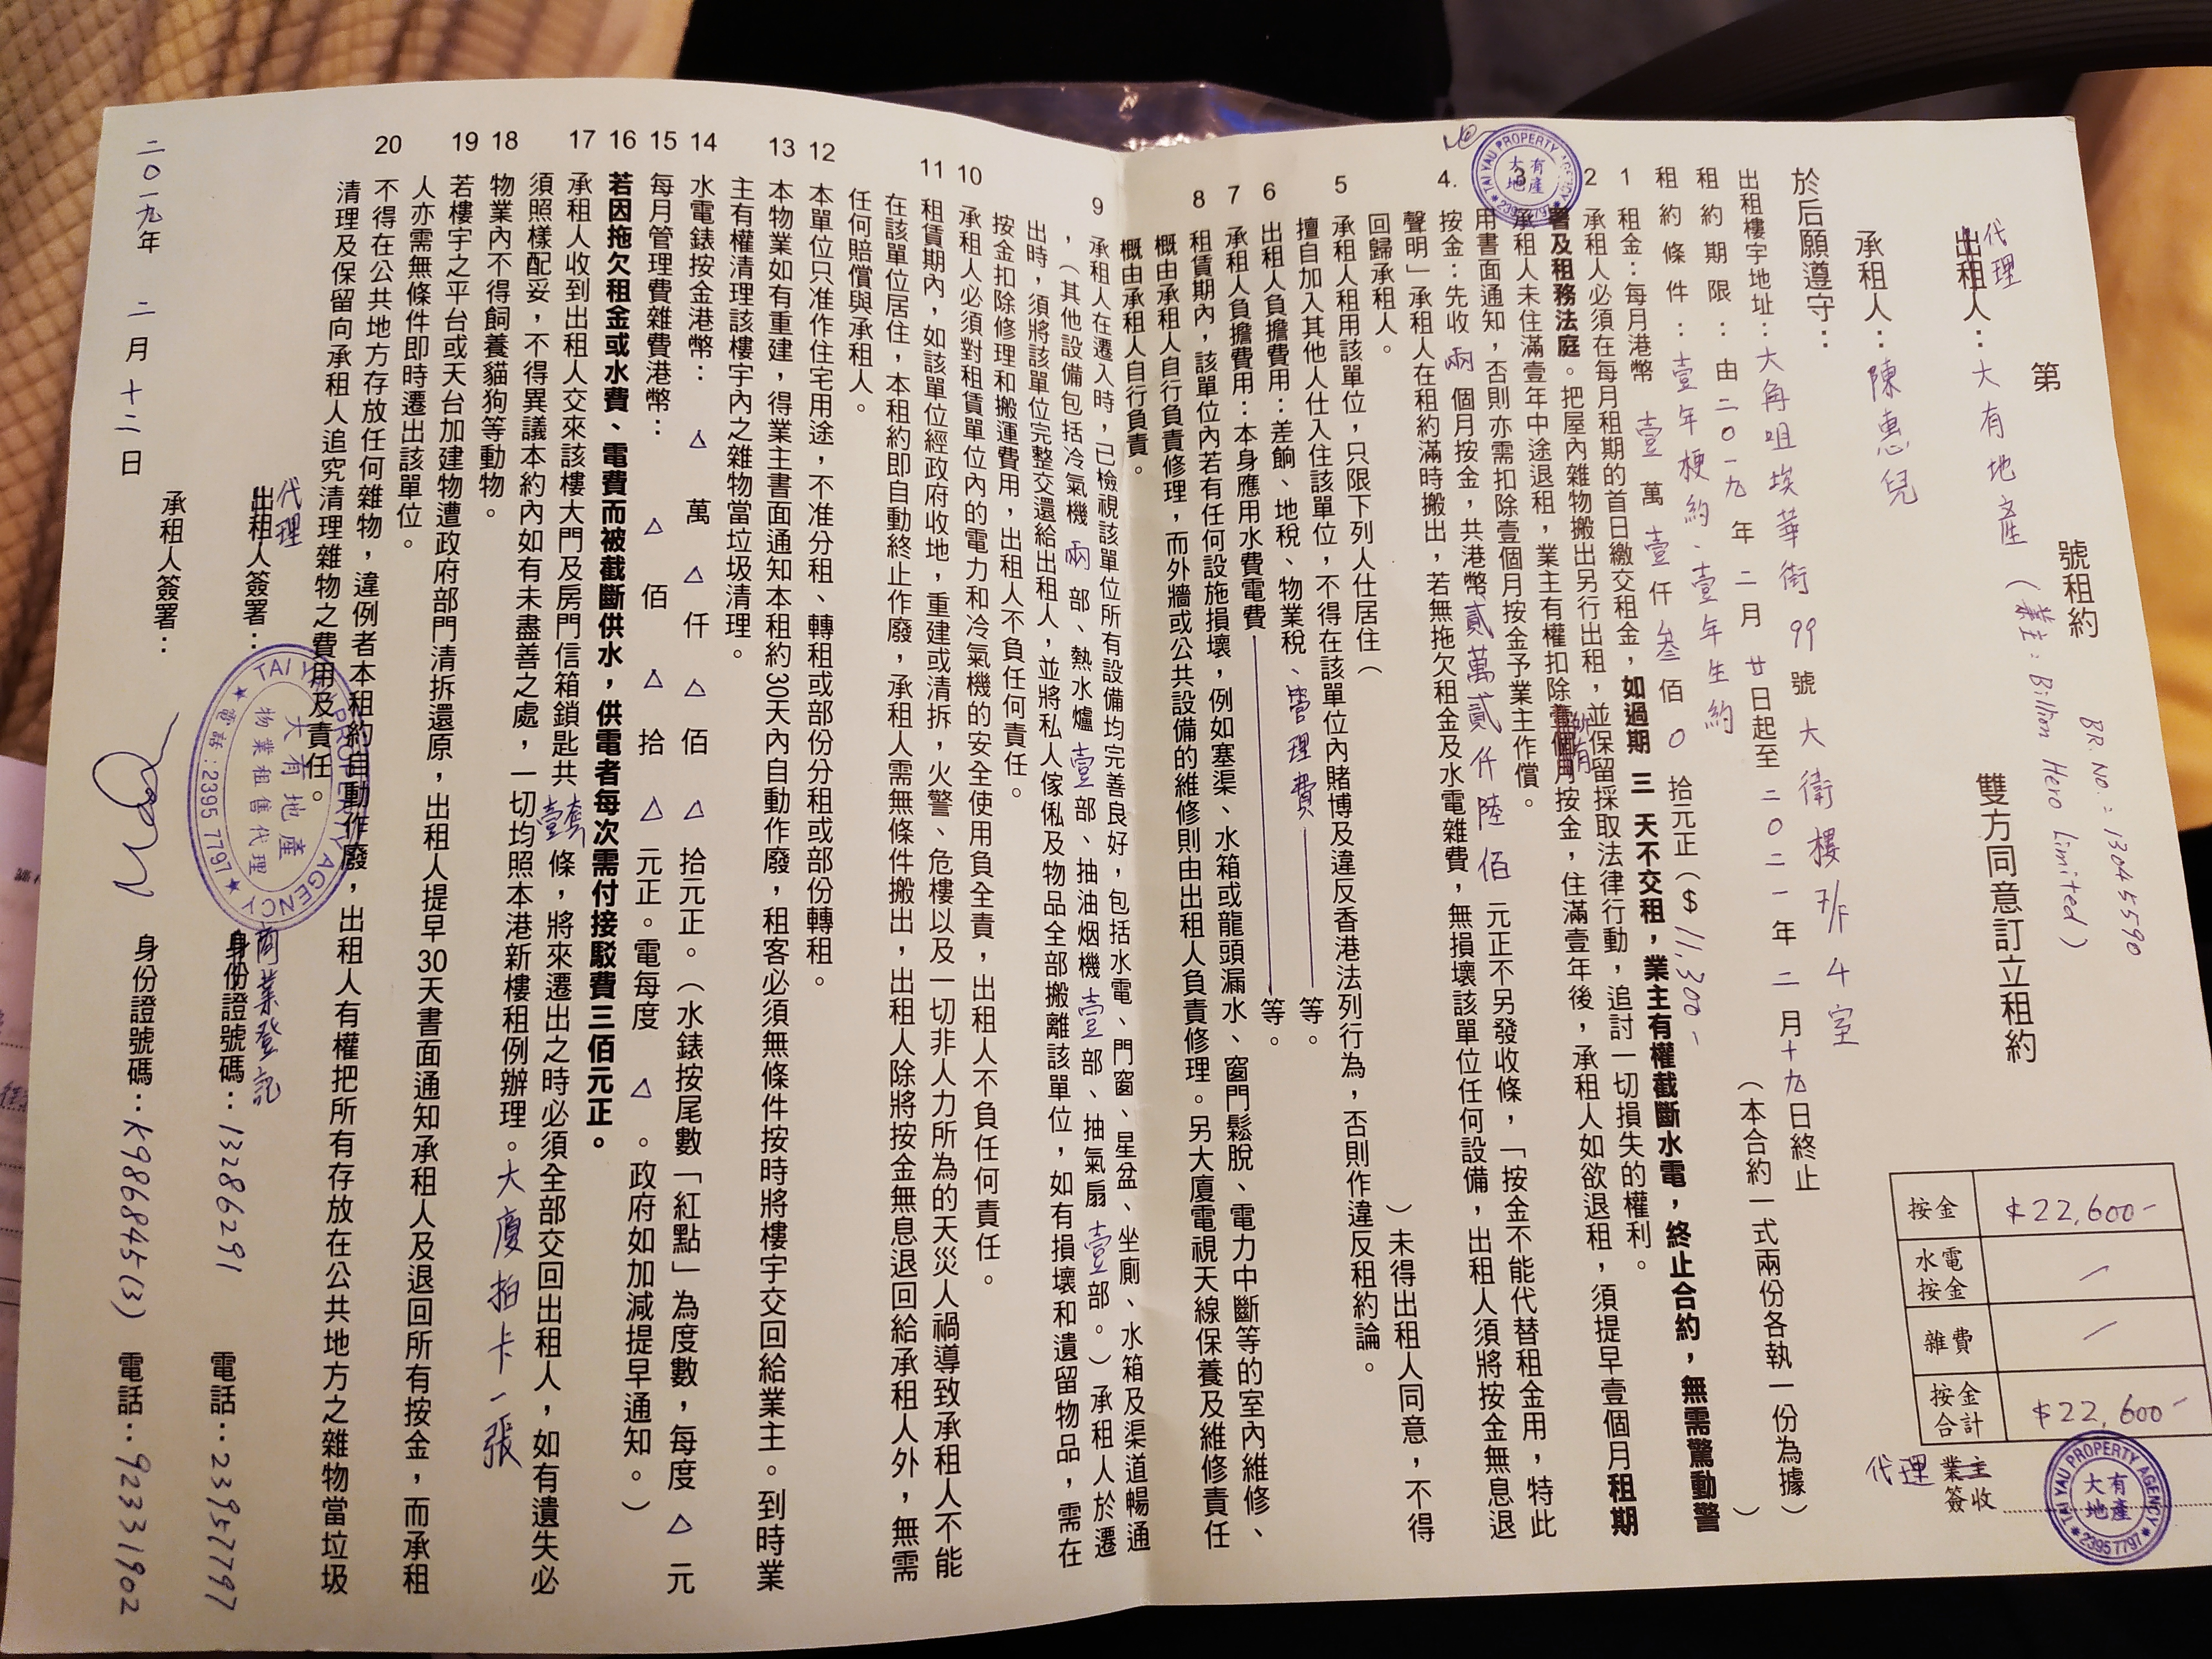 第 號租約 雙方同意訂立租約
BR. No.: 13045590
代理
出租人：大有地產（業主：Billion Hero Limited）
承租人：陳惠兒
於后願遵守：
出租樓宇地址：大角咀埃華街99號大衛樓7/F 4室
租約期限：由二0一九年二月廿日起至二0二一年二月十九日終止
租約條件：壹年梗約、壹年生約（本合約一式兩份各執一份為據）
1 租金：每月港幣壹萬壹仟叁佰0拾元正（$11,300-）
承租人必須在每月租期的首日繳交租金，如過期 三 天不交租，業主有權截斷水電，終止合約，無需驚動警
署及租務法庭。把屋內雜物搬出另行出租，並保留採取法律行動，追討一切損失的權利。
2 承租人未住滿壹年中途退租，業主有權扣除所有按金，住滿壹年後，承租人如欲退租，須提早壹個月租期
用書面通知，否則亦需扣除壹個月按金予業主作償。
3 按金：先收兩個月按金，共港幣貳萬貳仟陸佰元正不另發收條，「按金不能代替租金用，特此
聲明」承租人在租約滿時搬出，若無拖欠租金及水電雜費，無損壞該單位任何設備，出租人須將按金無息退
回歸承租人。
4. 承租人租用該單位，只限下列人仕居住（ ）未得出租人同意，不得
擅自加入其他人仕入住該單位，不得在該單位內賭博及違反香港法列行為，否則作違反租約論。
5 出租人負擔費用：差餉、地稅、物業稅、管理費 等。
6 承租人負擔費用：本身應用水費電費 等。
7 租賃期內，該單位內若有任何設施損壞，例如塞渠、水箱或龍頭漏水、窗門鬆脫、電力中斷等的室內維修、
概由承租人自行負責修理，而外牆或公共設備的維修則由出租人負責修理。另大廈電視天線保養及維修責任
概由承租人自行負責。
8 承租人在遷入時，已檢視該單位所有設備均完善良好，包括水電、門窗、星盆、坐廁、水箱及渠道暢通
，（其他設備包括冷氣機兩部、熱水爐壹部、抽油烟機壹部、抽氣扇壹部。）承租人於遷
出時，須將該單位完整交還給出租人，並將私人傢俬及物品全部搬離該單位，如有損壞和遺留物品，需在
按金扣除修理和搬運費用，出租人不負任何責任。
9 承租人必須對租賃單位內的電力和冷氣機的安全使用負全責，出租人不負任何責任。
10 租賃期內，如該單位經政府收地，重建或清拆，火警、危樓以及一切非人力所為的天災人禍導致承租人不能
在該單位居住，本租約即自動終止作廢，承租人需無條件搬出，出租人除將按金無息退回給承租人外，無需
任何賠償與承租人。
11 本單位只准作住宅用途，不准分租、轉租或部份分租或部份轉租。
12 本物業如有重建，得業主書面通知本租約30天內自動作廢，租客必須無條件按時將樓宇交回給業主。到時業
主有權清理該樓宇內之雜物當垃圾清理。
13 水電錶按金港幣：△萬△仟△佰△拾元正。（水錶按尾數「紅點」為度數，每度△元
14 每月管理費雜費港幣：△佰△拾△元正。電每度△。政府如加減提早通知。）
15 若因拖欠租金或水費、電費而被截斷供水，供電者每次需付接駁費三佰元正。
16 承租人收到出租人交來該樓大門及房門信箱鎖匙共壹套條，將來遷出之時必須全部交回出租人，如有遺失必
須照樣配妥，不得異議本約內如有未盡善之處，一切均照本港新樓租例辦理。大廈拍卡一張
17 物業內不得飼養貓狗等動物。
18 若樓宇之平台或天台加建物遭政府部門清拆還原，出租人提早30天書面通知承租人及退回所有按金，而承租
人亦需無條件即時遷出該單位。
19 不得在公共地方存放任何雜物，違例者本租約自動作廢，出租人有權把所有存放在公共地方之雜物當垃圾
20 清理及保留向承租人追究清理雜物之費用及責任。
代理
出租人簽署： 商業登記 身份證號碼：13286291 電話：23957797
承租人簽署： 身份證號碼：K986845(3) 電話：92331902
二0一九年 二月十二日
按金 $22,600-
水電按金 /
雜費 /
按金合計 $22,600-
代理 業主簽收
TAI YAU PROPERTY AGENCY
大有地產
23957797
TAI YAU PROPERTY AGENCY
大有地產
23957797
TAI YAU PROPERTY AGENCY
大有地產
物業租售代理
電話：2395 7797